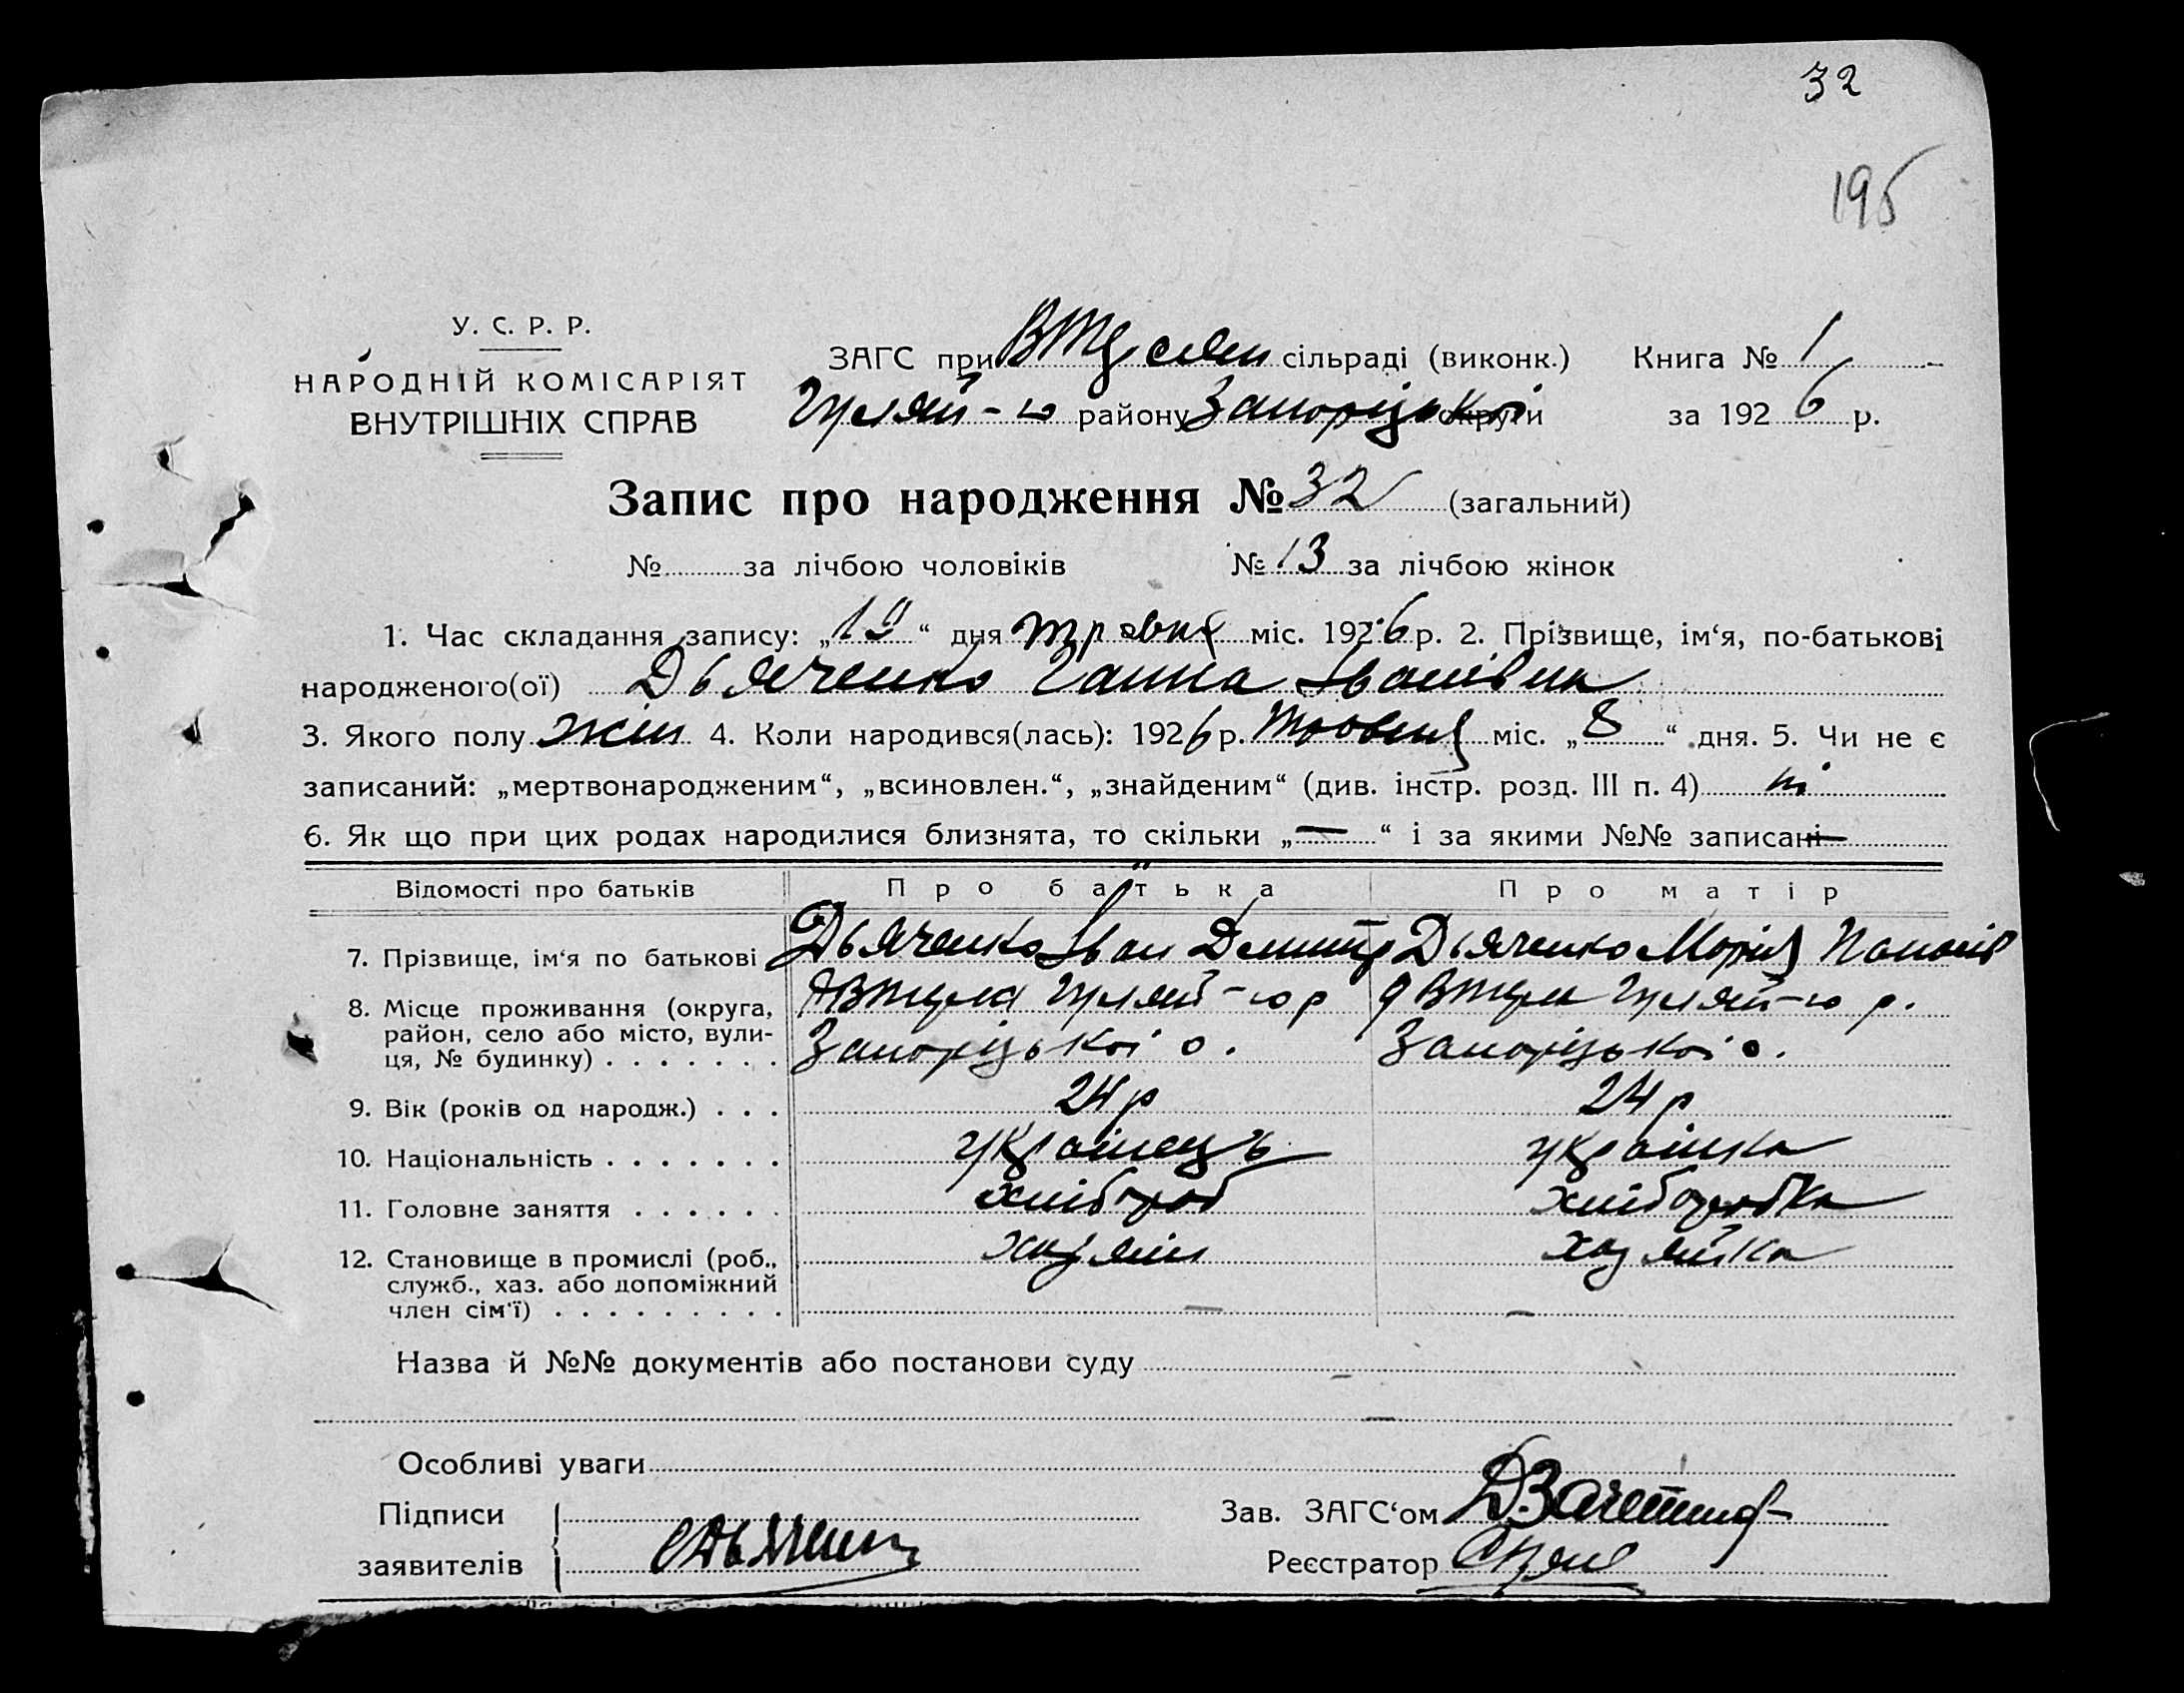 32
195
У. С. Р. Р.
НАРОДНІЙ КОМІСАРІЯТ
ВНУТРІШНІХ СПРАВ
ЗАГС при сільраді (виконк.) Книга № 1
Гуляй-ю району Запоріцької округи за 1926 р.
Запис про народження № 32 (загальний)
№ за лічбою чоловіків № 13 за лічбою жінок
1. Час складання запису: „19“ дня травня міс. 1926 р. 2. Прізвище, ім‘я, по-батькові
народженого(ої) Дьяченко Ганна Іванівна
3. Якого полу жін 4. Коли народився(лась): 1926 р. травня міс. „8“ дня. 5. Чи не є
записаний: „мертвонародженим“, „всиновлен.“, „знайденим“ (див. інстр. розд. III п. 4) ні
6. Як що при цих родах народилися близнята, то скільки „—“ і за якими №№ записані —
Відомості про батьків Про батька Про матір
7. Прізвище, ім‘я по батькові Дьяченко Іван Дмитр Дьяченко Марія
8. Місце проживання (округа, Гуляй-ю р Гуляй-ю р.
район, село або місто, вули- Запоріцької о. Запоріцької о.
ця, № будинку) . . . . . . .
9. Вік (років од народж.) . . . 24 р 24 р
10. Національність . . . . . . . українець українка
11. Головне заняття . . . . . . хлібороб хліборобка
12. Становище в промислі (роб., хазяїн хазяйка
служб., хаз. або допоміжний
член сім‘ї) . . . . . . . . . — —
Назва й №№ документів або постанови суду —
—
Особливі уваги
Підписи Зав. ЗАГС‘ом
заявителів Реєстратор